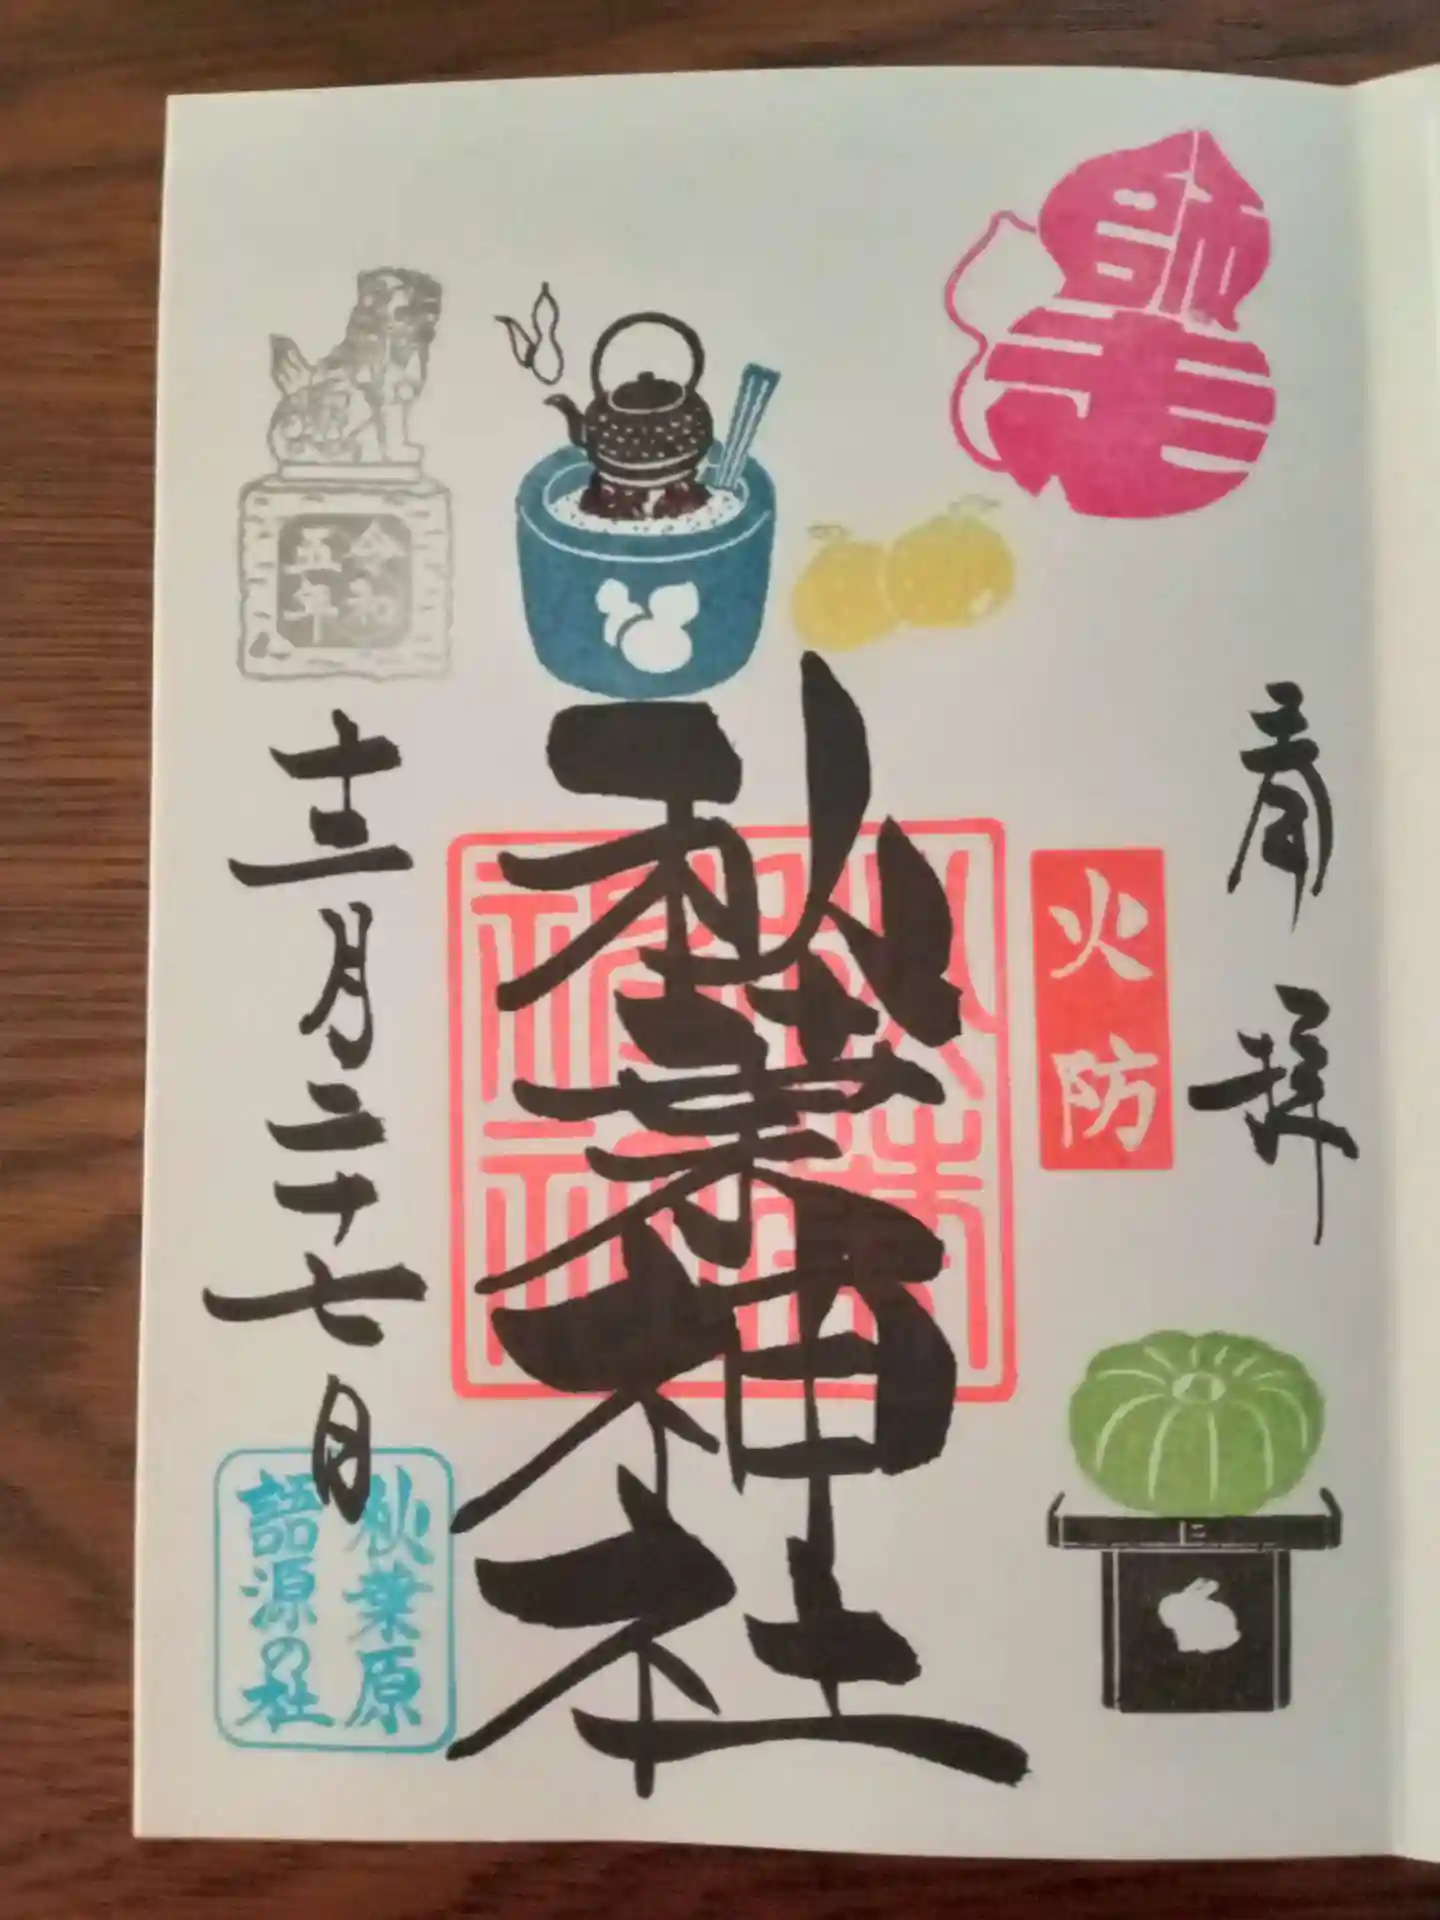 師走
奉拝
火防
秋葉神社
秋葉神社
令和
五年
十二月二十七日
秋葉原
語源の社